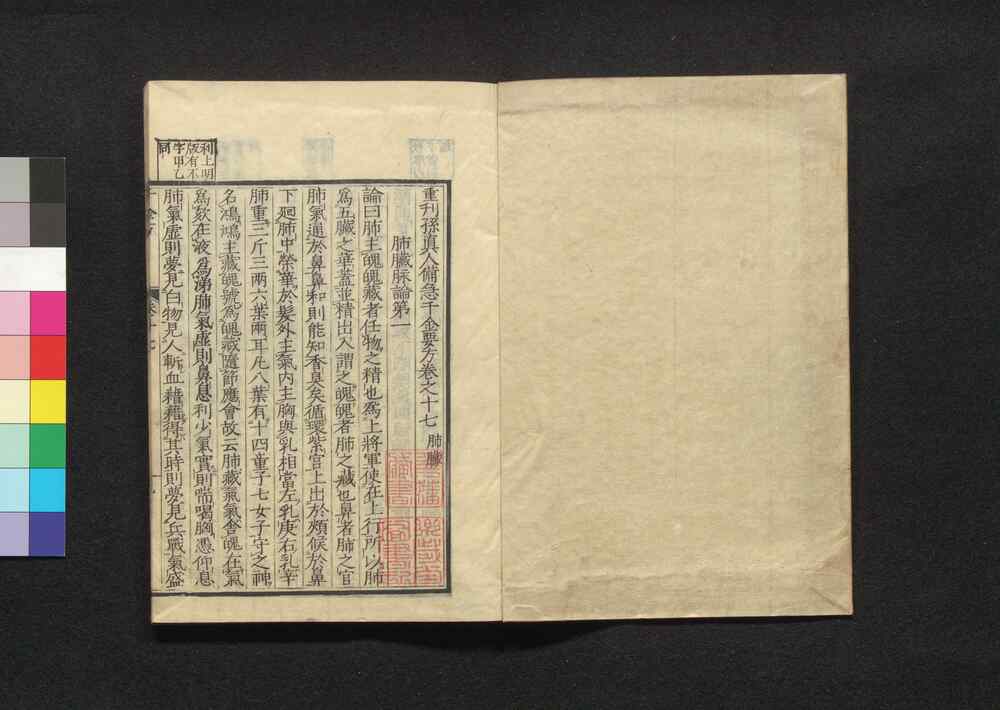 重刊孫真人備急千金要方卷之十七 肺臟
肺臟脉論第一
論曰肺主魄魄藏者任物之精也爲上將軍使在上行所以肺
爲五臟之華蓋並精出入謂之魄魄者肺之藏也鼻者肺之官
肺氣通於鼻鼻和則能知香臭矣循環紫宮上出於頰候於鼻
下廻肺中榮華於髮外主氣内主胸與乳相當左乳庚右乳辛
肺重三斤三兩六葉兩耳凡八葉有十四童子七女子守之神
名鴻鴻主藏魄號爲魄藏隨節應會故云肺藏氣氣舍魄在氣
爲欬在液爲涕肺氣虛則鼻息利少氣實則喘喝胸憑仰息
肺氣虛則夢見白物見人斬血藉藉得其時則夢見兵戰氣盛
利上明
版有不
字甲乙
同